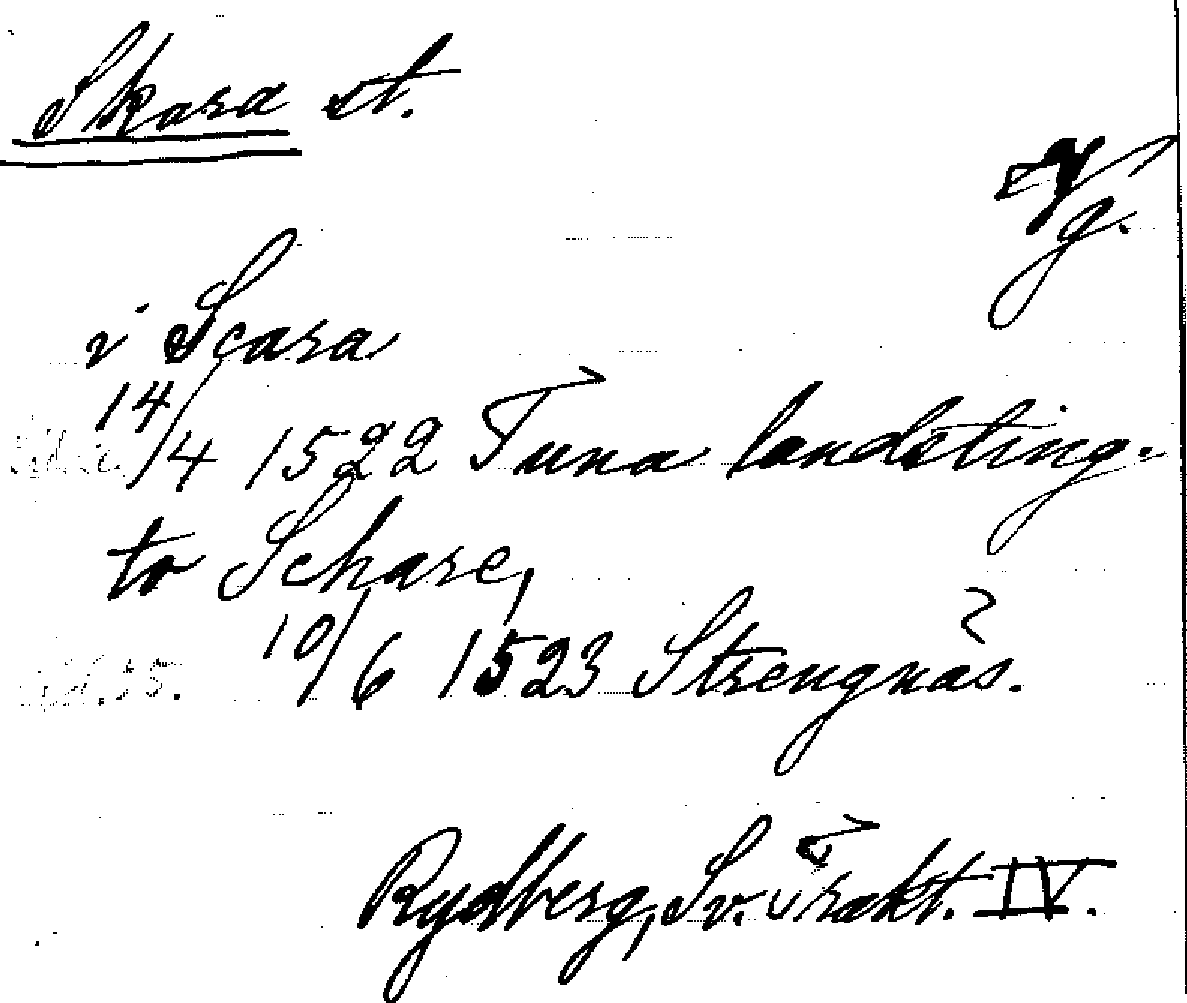 Skara st.
Vg.
i Scara
14/4 1522 Tuna landsting.
to Schare,
10/6 1523 Strengnäs.
Rydberg, Sv. Trakt. IV.